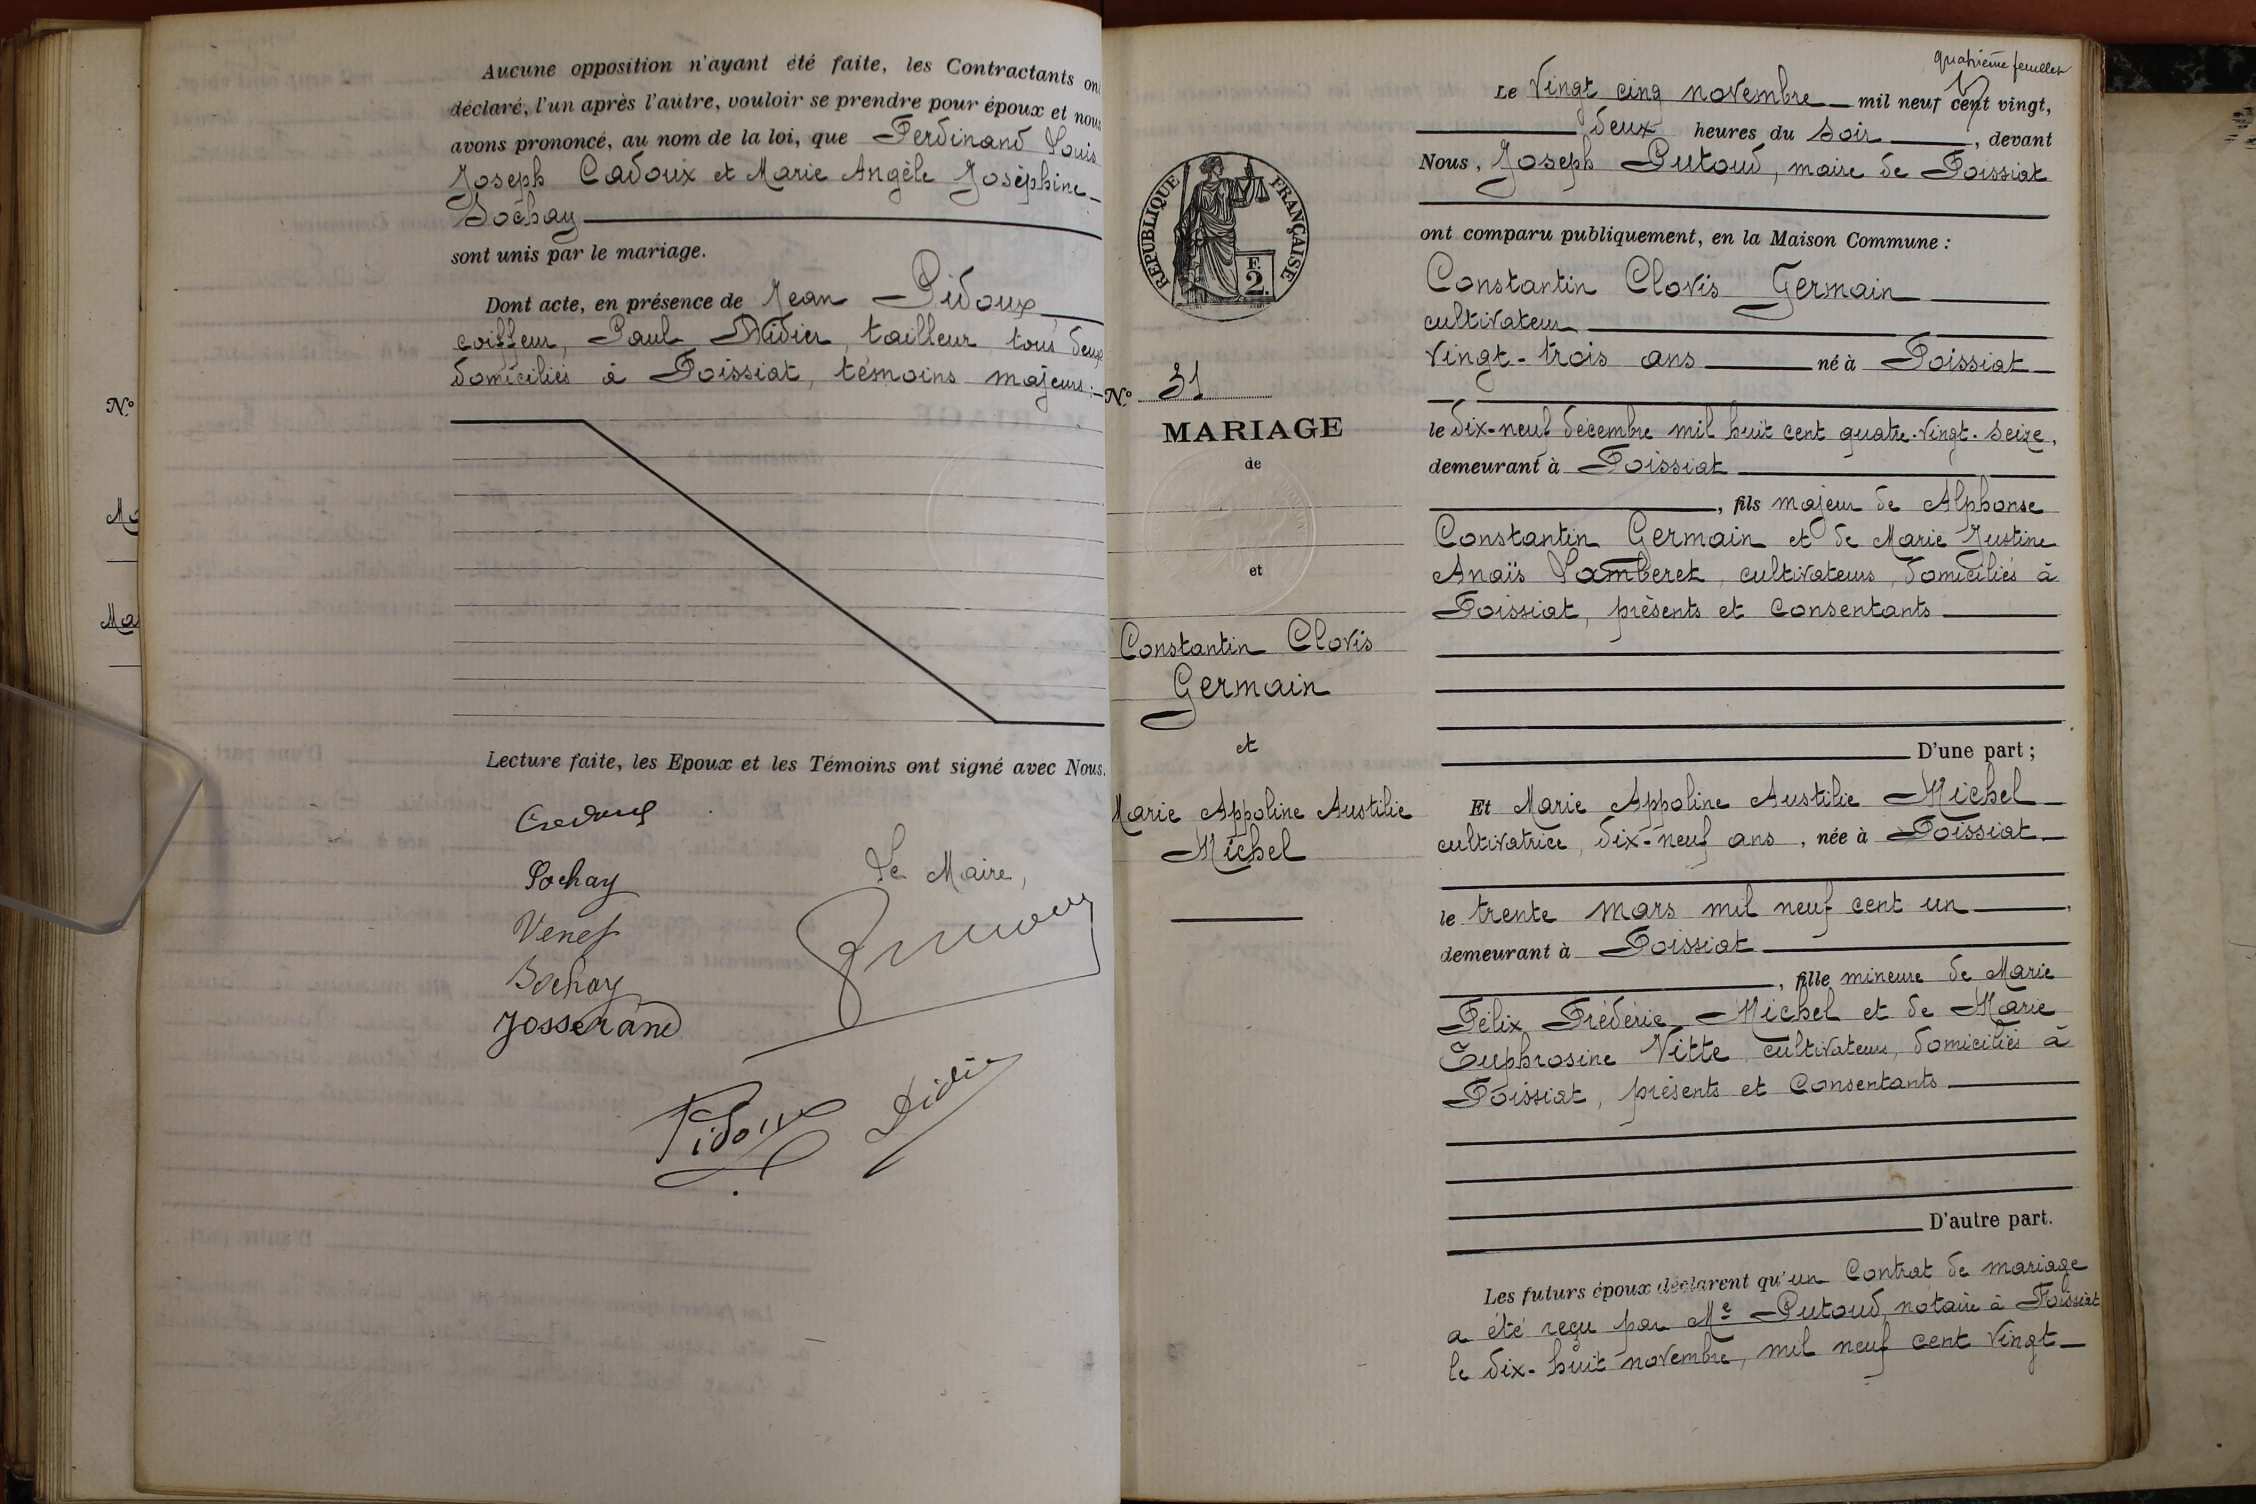 Aucune opposition n'ayant été faite, les Contractants on
déclaré, l'un après l'autre, vouloir se prendre pour époux et nous
avons prononcé, au nom de la loi, que Ferdinand Louis
Joseph Cadoux et Marie Angèle Joséphine
Sochay
sont unis par le mariage.
Dont acte, en présence de Jean Pidoux
coiffeur, Paul Didier, tailleur, tous deux
domiciliés à Foissiat, témoins majeurs.
Lecture faite, les Epoux et les Témoins ont signé avec Nous.
Cadoux
Sochay
Le Maire,
Venet
Sochay
Josserand
Pidoux
Didier
N°
Ma
Ma
RÉPUBLIQUE FRANÇAISE
F.
2.
N° 31
MARIAGE
de
et
Constantin Clovis
Germain
et
Marie Appoline Austilie
Michel
quatrième feuillet
Le vingt cinq novembre mil neuf cent vingt,
deux heures du soir, devant
Nous, Joseph Putoud, maire de Foissiat
ont comparu publiquement, en la Maison Commune :
Constantin Clovis Germain
cultivateur
vingt-trois ans né à Foissiat
le dix-neuf décembre mil huit cent quatre-vingt-seize,
demeurant à Foissiat
, fils majeur de Alphonse
Constantin Germain et de Marie Justine
Anaïs Lamberet, cultivateurs, domiciliés à
Foissiat, présents et consentants
D'une part ;
Et Marie Appoline Austilie Michel
cultivatrice, dix-neuf ans, née à Foissiat
le trente mars mil neuf cent un,
demeurant à Foissiat
, fille mineure de Marie
Félix Frédéric Michel et de Marie
Euphrosine Vitte, cultivateurs, domiciliés à
Foissiat, présents et consentants
D'autre part.
Les futurs époux déclarent qu'un contrat de mariage
a été reçu par Me Putoud, notaire à Foissiat
le dix-huit novembre, mil neuf cent vingt